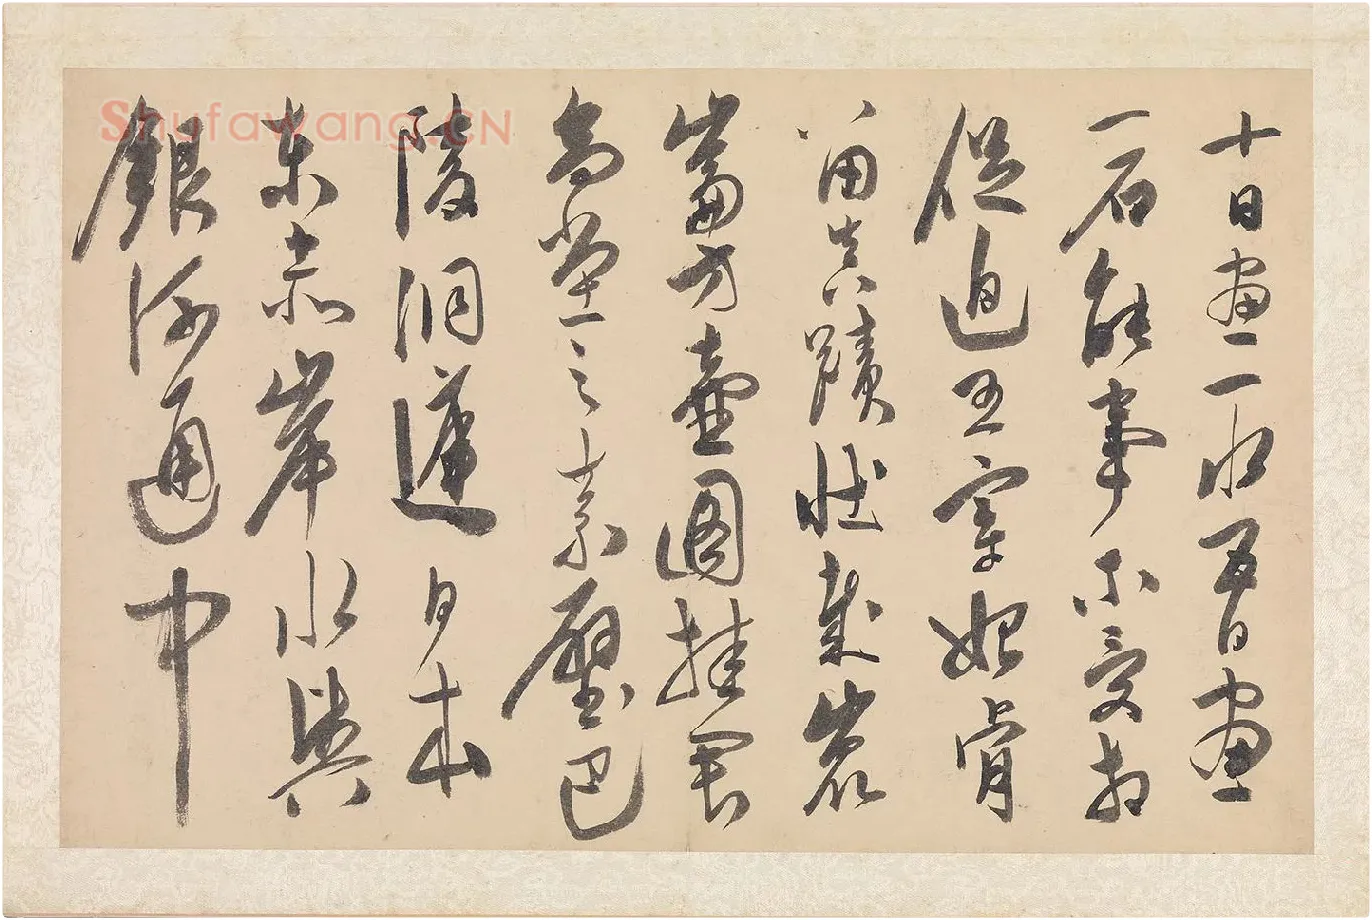 十日畫一水五日畫
一石能事不受相
促迫王宰始肯
留真蹟壯哉崑
崙方壺圖挂君
高堂之素壁巴
陵洞庭日本
東赤岸水與
銀河通中
Shufawang.CN